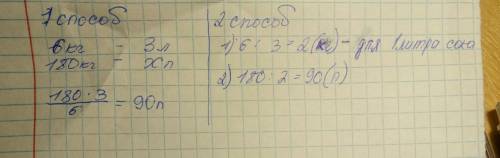 1 способ
6кг – 3л
180кг – Хл
180 · 3 / 6 = 90л
2 способ
1) 6 : 3 = 2(кг) – для 1 литра сока
2) 180 : 2 = 90(л)